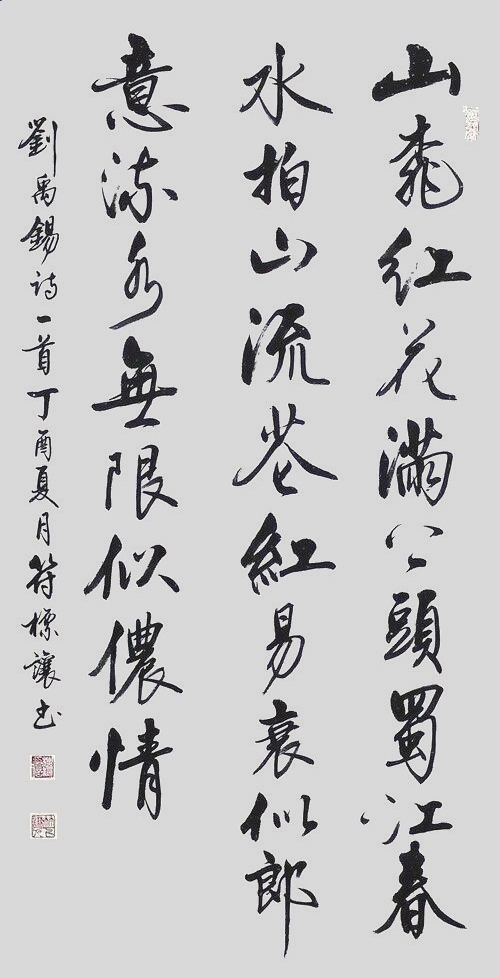 山桃红花滿上頭蜀江春
水拍山流花紅易衰似郎
意流水無限似儂情
劉禹錫诗一首丁酉夏月符標讓书